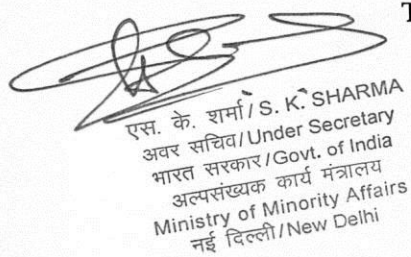 T
एस. के. शर्मा / S. K. SHARMA
अवर सचिव/Under Secretary
भारत सरकार/Govt. of India
अल्पसंख्यक कार्य मंत्रालय
Ministry of Minority Affairs
नई दिल्ली/New Delhi